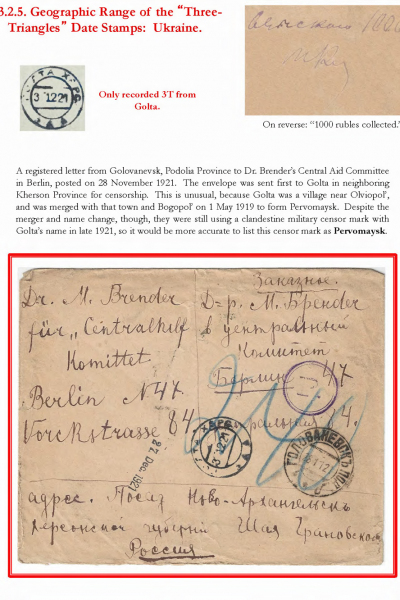 3.2.5. Geographic Range of the “Three-
Triangles” Date Stamps: Ukraine.
3 12 21
Only recorded 3T from
Golta.
On reverse: “1000 rubles collected.”
A registered letter from Golovanevsk, Podolia Province to Dr. Brender's Central Aid Committee
in Berlin, posted on 28 November 1921. The envelope was sent first to Golta in neighboring
Kherson Province for censorship. This is unusual, because Golta was a village near Olviopol',
and was merged with that town and Bogopol' on 1 May 1919 to form Pervomaysk. Despite the
merger and name change, though, they were still using a clandestine military censor mark with
Golta's name in late 1921, so it would be more accurate to list this censor mark as Pervomaysk.
Заказное.
Dr. M. Brender
für „Centralhilf
Komittet
Berlin N47
Yorckstrasse 84
Д-р. М. Брендер
в центральный
Комитет
Берлин 47
27. Dec. 1921
3 12 21
ГОЛОВАНЕВСКЪ ПОД.
адрес. Посел Ново-Архангельскъ
Херсонской губерний Шая Грановской
Россия